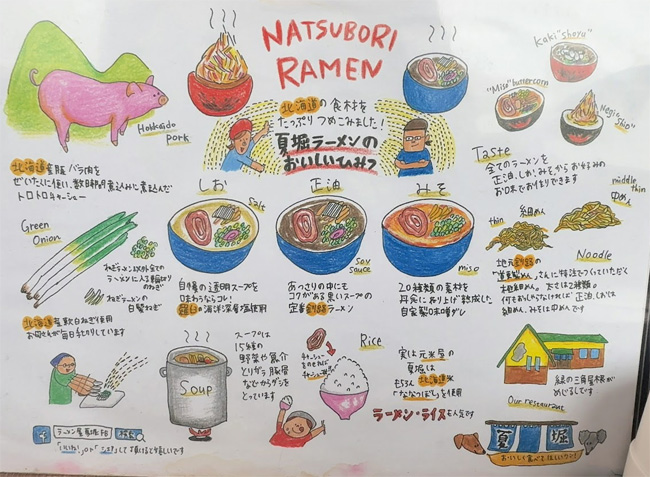 NATSUBORI
RAMEN
北海道の食材を
たっぷりつめこみました!
夏堀ラーメンの
おいしいひみつ
Kaki "shoyu"
"Miso" buttercorn
Negi "shio"
Hokkaido
pork
北海道産豚バラ肉を
ぜいたくに使い、数時間煮込みに煮込んだ
トロトロチャーシュー
Taste
全てのラーメンを
正油、しお、みそからお好みの
お味でお作りできます
しお
正油
みそ
Salt
Soy
sauce
miso
Green
Onion
ねぎラーメン以外全ての
ラーメンに入る輪切り
のねぎ
ねぎラーメンの
白髪ねぎ
北海道産軟白ねぎ使用
お母さんが毎日手切りしています
自慢の透明スープを
味わうならコレ!
羅臼の海洋深層塩使用
あっさりの中にも
コクがある黒いスープの
定番釧路ラーメン
20種類の素材を
丹念に
自家製味噌ダレ
thin
細めん
middle
thin
中めん
Noodle
地元釧路の
さんに特注でつくっていただく
太さは2種類。
何もおっしゃらなければ正油、しおは
細めん、みそは中めんです
Soup
スープは
15種の
野菜や魚介
とりガラ、豚骨
などからダシを
とっています
Rice
チャーシュー
をのせれば
チャーシュー丼
実は元米屋の
夏堀は
もちろん北海道米
「ななつぼし」を使用
ラーメン・ライスも人気です
緑の三角屋根が
めじるしです
Our restaurant
夏堀
おいしく食べてほしいワン!
ラーメン屋夏堀FB
検索
「いいね!」or
して頂けると嬉しいです